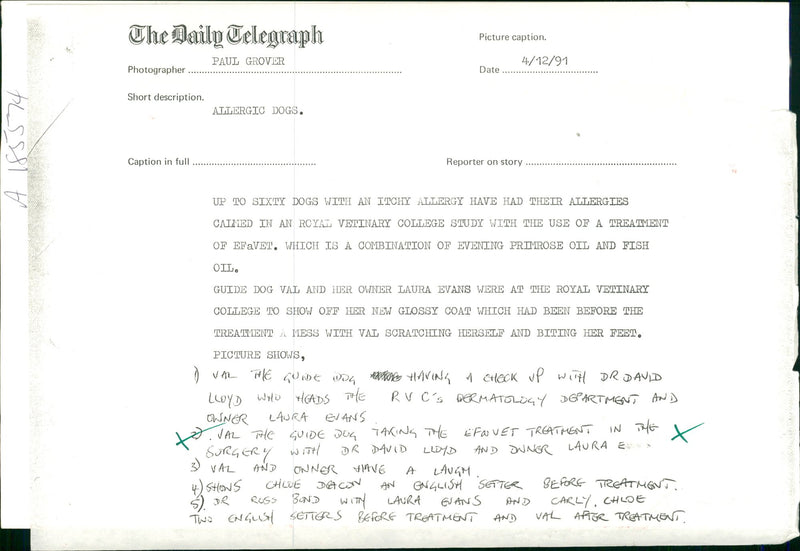 The Daily Telegraph
Picture caption.
Photographer PAUL GROVER
Date 4/12/91
Short description.
ALLERGIC DOGS.
A 185574
Caption in full
Reporter on story
UP TO SIXTY DOGS WITH AN ITCHY ALLERGY HAVE HAD THEIR ALLERGIES
CALMED IN AN ROYAL VETINARY COLLEGE STUDY WITH THE USE OF A TREATMENT
OF EFaVET. WHICH IS A COMBINATION OF EVENING PRIMROSE OIL AND FISH
OIL.
GUIDE DOG VAL AND HER OWNER LAURA EVANS WERE AT THE ROYAL VETINARY
COLLEGE TO SHOW OFF HER NEW GLOSSY COAT WHICH HAD BEEN BEFORE THE
TREATMENT A MESS WITH VAL SCRATCHING HERSELF AND BITING HER FEET.
PICTURE SHOWS,
1) VAL THE GUIDE DOG HAVING A CHECK UP WITH DR DAVID
LLOYD WHO HEADS THE R V C'S DERMATOLOGY DEPARTMENT AND
OWNER LAURA EVANS
2). VAL THE GUIDE DOG TAKING THE EFaVET TREATMENT IN THE
SURGERY WITH DR DAVID LLOYD AND OWNER LAURA
3) VAL AND OWNER HAVE A LAUGH.
4) SHOWS CHLOE DEACON AN ENGLISH SETTER BEFORE TREATMENT.
5). DR ROSS BOND WITH LAURA EVANS AND CARLY, CHLOE
TWO ENGLISH SETTERS BEFORE TREATMENT AND VAL AFTER TREATMENT.